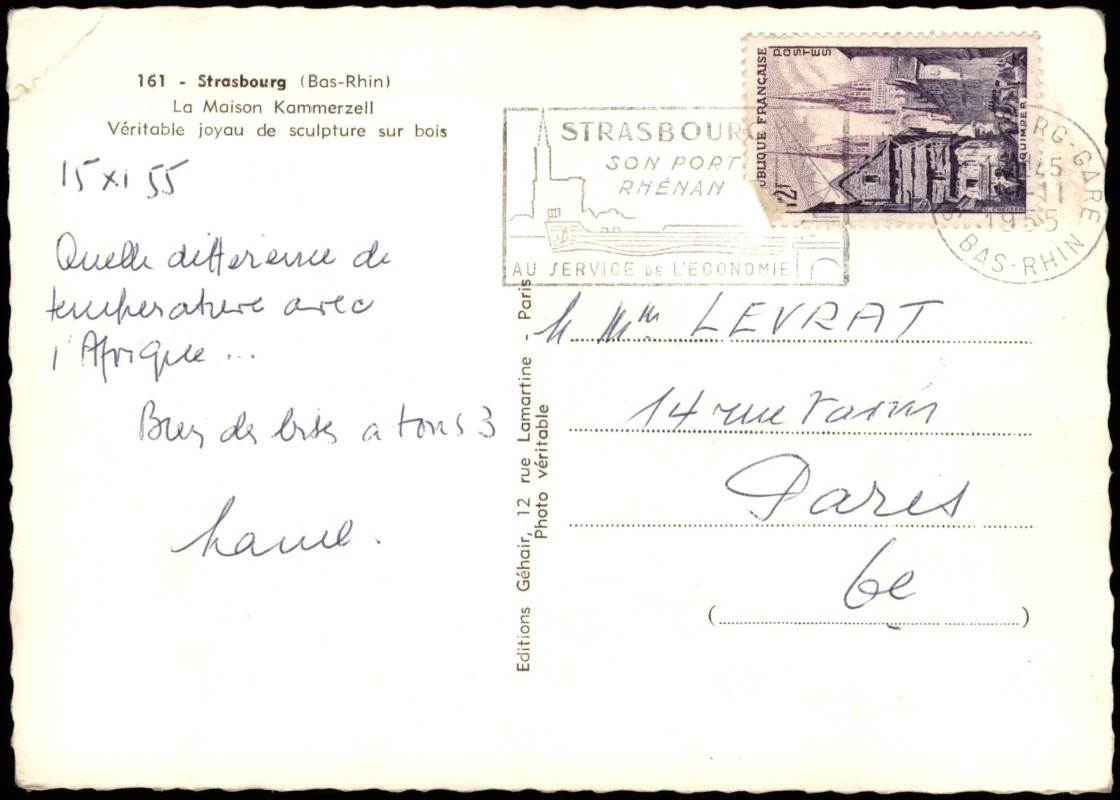 161 - Strasbourg (Bas-Rhin)
La Maison Kammerzell
Véritable joyau de sculpture sur bois
15 XI 55
Quelle différence de
temperature avec
l'Afrique...
de bises a tous 3
Editions Géhair, 12 rue Lamartine - Paris
Photo véritable
STRASBOURG
SON PORT
RHÉNAN
AU SERVICE DE L'ECONOMIE
POSTES
UBLIQUE FRANÇAISE
QUIMPER
12f
RG-GARE
45
-11
1955
BAS-RHIN
M Mme LEVRAT
14 rue
Paris
6e